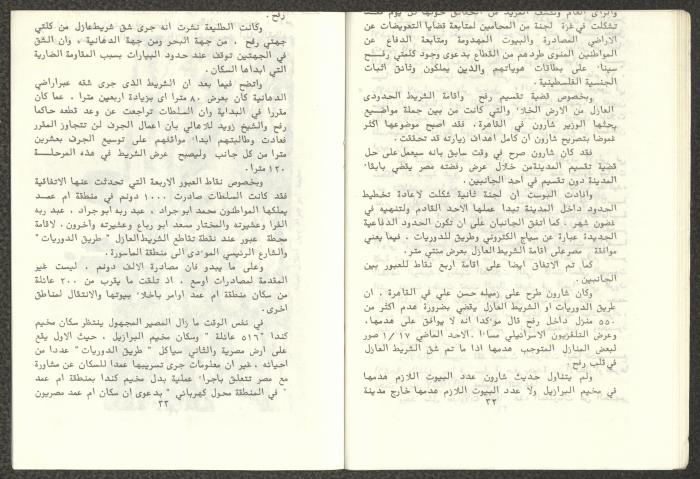 تشكلت في غزة لجنة من المحامين لمتابعة قضايا التعويضات عن
الاراضي المصادرة والبيوت المهدومة ومتابعة الدفاع عن
المواطنين المنوى طردهم من القطاع بدعوى وجود كلمتي رفـح
سيناء على بطاقات هوياتهم والذين يملكون وثائق اثبات
الجنسية الفلسطينية .
وبخصوص قضية تقسيم رفح واقامة الشريط الحدودى
العازل من الارض الخلاء والتي كانت من بين جملة مواضيع
بحثها الوزير شارون في القاهرة، فقد اصبح موضوعها اكثر
غموضا بتصريح شارون ان كامل اهداف زيارته قد تحققت .
فقد كان شارون صرح في وقت سابق بانه سيعمل على حل
قضية تقسيم المدينة من خلال عرض رفضته مصر يقضي بابقاء
المدينة دون تقسيم في احد الجانبين .
وافادت البوست ان لجنة ثانية شكلت لاعادة تخطيط
الحدود داخل المدينة تبدأ عملها الاحد القادم وتنتهيه في
غضون شهر . كما اتفق الجانبان على ان تكون الحدود الدفاعية
الجديدة عبارة عن سياج الكتروني وطريق للدوريات . فيما يعني
موافقة مصر على اقامة الشريط العازل بعرض مئتي متر .
كما تم الاتفاق ايضا على اقامة اربع نقاط للعبور بين
الجانبين .
وكان شارون طرح على زميله حسن علي في القاهرة . ان
طريق الدوريات او الشريط العازل يقضي بضرورة هدم اكثر من
٥٥٠ منزل داخل رفح قال مؤكدا انه لا يوافق على هدمها .
وعرض التلفزيون الاسرائيلي مساء الاحد الماضي ١/١٧ صور
لبعض المنازل المتوجب هدمها اذا ما تم شق الشريط العازل
في قلب رفح .
ولم يتناول حديث شارون عدد البيوت اللازم هدمها
في مخيم البرازيل ولا عدد البيوت اللازم هدمها خارج مدينة
٣٢
رفح .
وكانت الطليعة نشرت انه جرى شق شريط عازل من كلتي
جهتي رفح . من جهة البحر ومن جهة الدهانية ، وان الشق
في الجهتين توقف عند حدود البيارات بسبب المقاومة الضارية
التي ابداها السكان .
واتضح فيما بعد ان الشريط الذى جرى شقه عبر اراضي
الدهانية كان بعرض ٨٠ مترا اى بزيادة اربعين مترا . عما كان
مقررا في البداية وان السلطات تراجعت عن وعد قطعه حاكما
رفح والشيخ زويد للاهالي بان اعمال الجرف لن تتجاوز المقرر
فعادت وطالبتهم ابداء موافقتهم على توسيع الجرف بعشرين
مترا من كل جانب وليصبح عرض الشريط في هذه المرحلـــة
١٢٠ مترا .
وبخصوص نقاط العبور الاربعة التي تحدثت عنها الاتفاقية
فقد كانت السلطات صادرت ١٠٠٠ دونم في منطقة ام عمد
يملكها المواطنون محمد ابو جراد ، عبد ربه ابو جراد ، عبد ربه
الفرا وعشيرته والمختار سعد ابو رباع وعشيرته وآخرون . لاقامة
محطة عبور عند نقطة تقاطع الشريط العازل " طريق الدوريات "
والشارع الرئيسي المؤدى الى منطقة الماسورة .
وعلى ما يبدو فان مصادرة الالف دونم . ليست غير
المقدمة لمصادرات اوسع . اذ تلقت ما يقرب من ٢٠٠ عائلة
من سكان منطقة ام عمد اوامر باخلاء بيوتها والانتقال لمناطق
اخرى .
في نفس الوقت ما زال المصير المجهول ينتظر سكان مخيم
كندا "٥١٦ عائلة " وسكان مخيم البرازيل ، حيث الاول يقع
على ارض مصرية والثاني سيأكل " طريق الدوريات " عددا من
احيائه ، غير ان معلومات جرى تسريبها عمدا للسكان عن مشاورة
مع مصر تتعلق باجراء عملية بدل مخيم كندا بمنطقة ام عمد
" في المنطقة محول كهربائي " بدعوى ان سكان ام عمد مصريون
٣٣